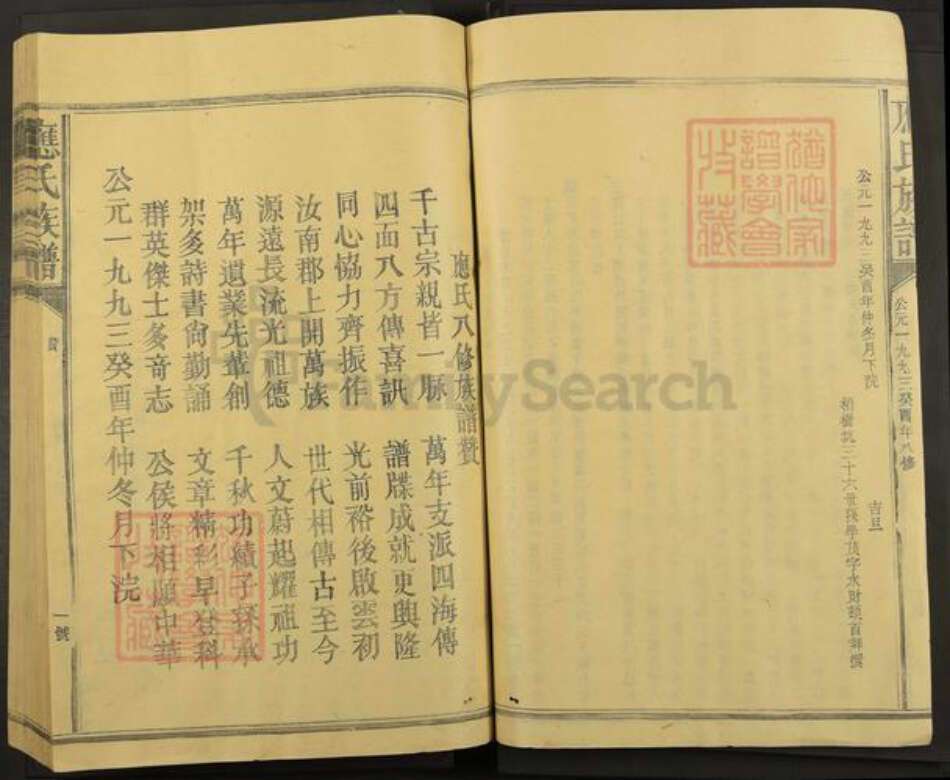 應氏族譜
公元一九九三癸酉年八修
公元一九九三癸酉年仲冬月下浣
吉旦
譜學會
收藏
應氏八修族譜贊
千古宗親皆一脉 萬年支派四海傳
四面八方傳喜訊 譜牒成就更興隆
同心協力齊振作 光前裕後啟雲礽
汝南郡上開萬族 世代相傳古至今
源遠長流光祖德 人文蔚起耀祖功
萬年遺業先輩創 千秋功績子孫承
架多詩書尚勤誦 文章精彩早登科
群英傑士多奇志 公侯將相願中華
公元一九九三癸酉年仲冬月下浣
應氏族譜
贊
一號
FamilySearch